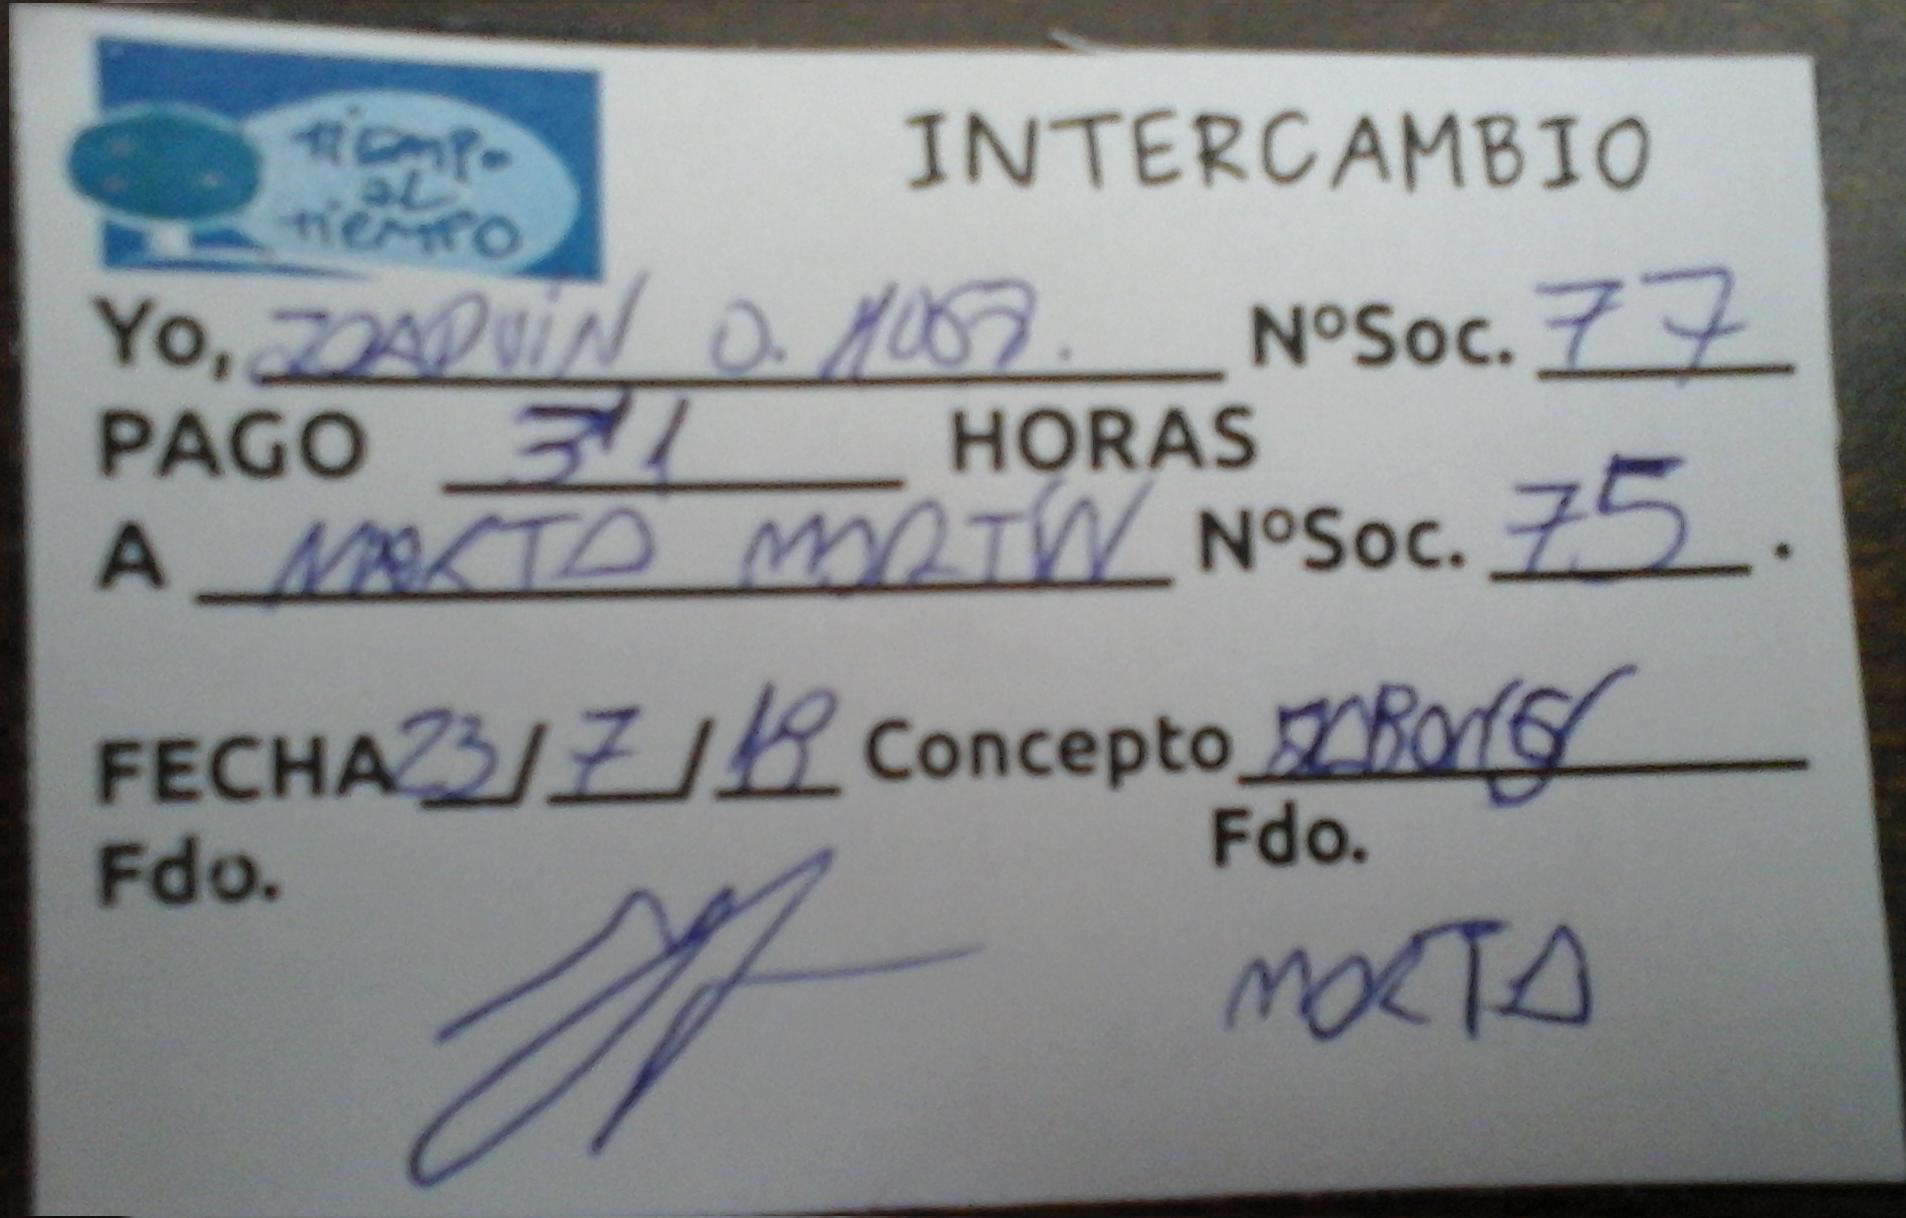 Tiempo
al
Tiempo
INTERCAMBIO
Yo, JOAQUIN O. NºSoc. 77
PAGO 3'1 HORAS
A MARTA MARTIN NºSoc. 75.
FECHA 23/7/18 Concepto
Fdo. Fdo.
MARTA